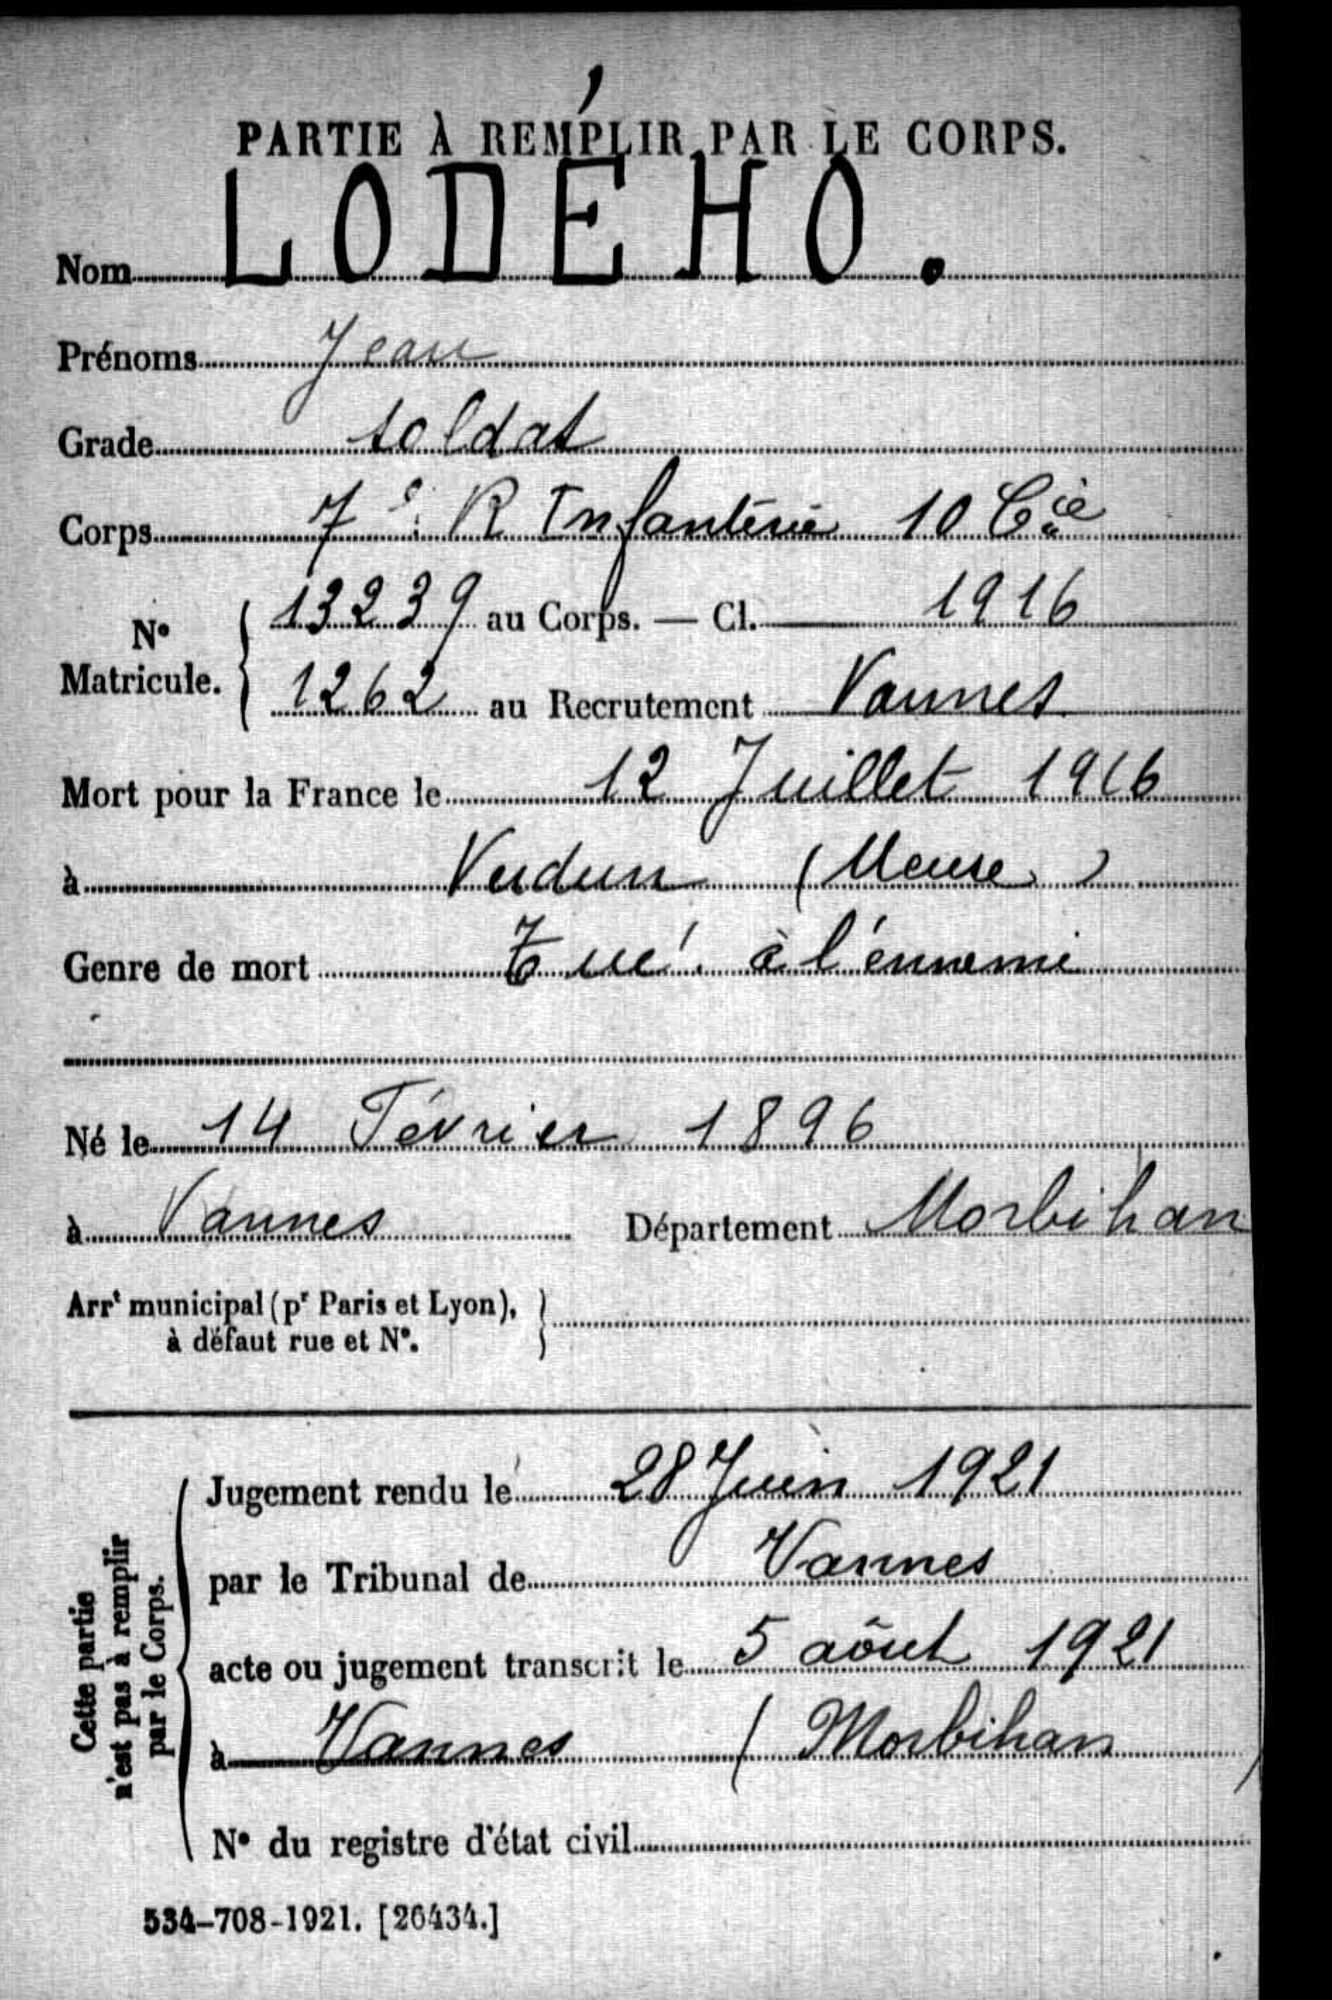 PARTIE À REMPLIR PAR LE CORPS.
Nom LODÉHO.
Prénoms Jean
Grade soldat
Corps 7e R Infanterie 10 Cie
N° Matricule. 13239 au Corps. — Cl. 1916
1262 au Recrutement Vannes
Mort pour la France le 12 Juillet 1916
à Verdun (Meuse)
Genre de mort Tué à l'ennemi
Né le 14 Février 1896
à Vannes Département Morbihan
Arrt municipal (pr Paris et Lyon),
à défaut rue et N°.
Cette partie
n'est pas à remplir
par le Corps.
Jugement rendu le 28 Juin 1921
par le Tribunal de Vannes
acte ou jugement transcrit le 5 aôut 1921
à Vannes (Morbihan)
N° du registre d'état civil
534-708-1921. [26434.]